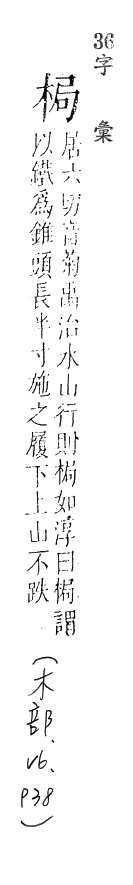 36字 彙
梮
居六切音菊禹治水山行則梮如淳曰梮謂
以鐵爲錐頭長半寸施之履下上山不跌
(木部、v6、p38)